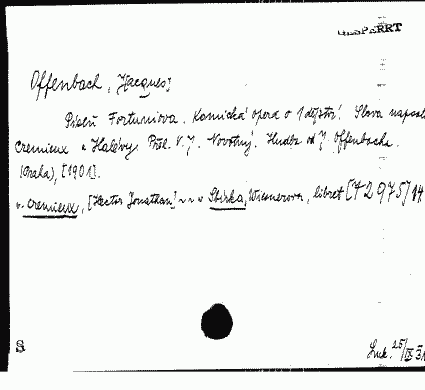 GESPERRT
Offenbach, [Jacques]
Píseň Fortuniova. Komická opera o 1 dějství. Slova napsali
Cremieux a Halévy. Přel. V. J. Novotný. Hudba od J. Offenbacha.
(Praha), [1901].
v. Cremieux, [Hector Jonathan] ~ ~ v Sbírka, Wiesnerova, libret [72975] 14
S
Luk. 25/IX 31